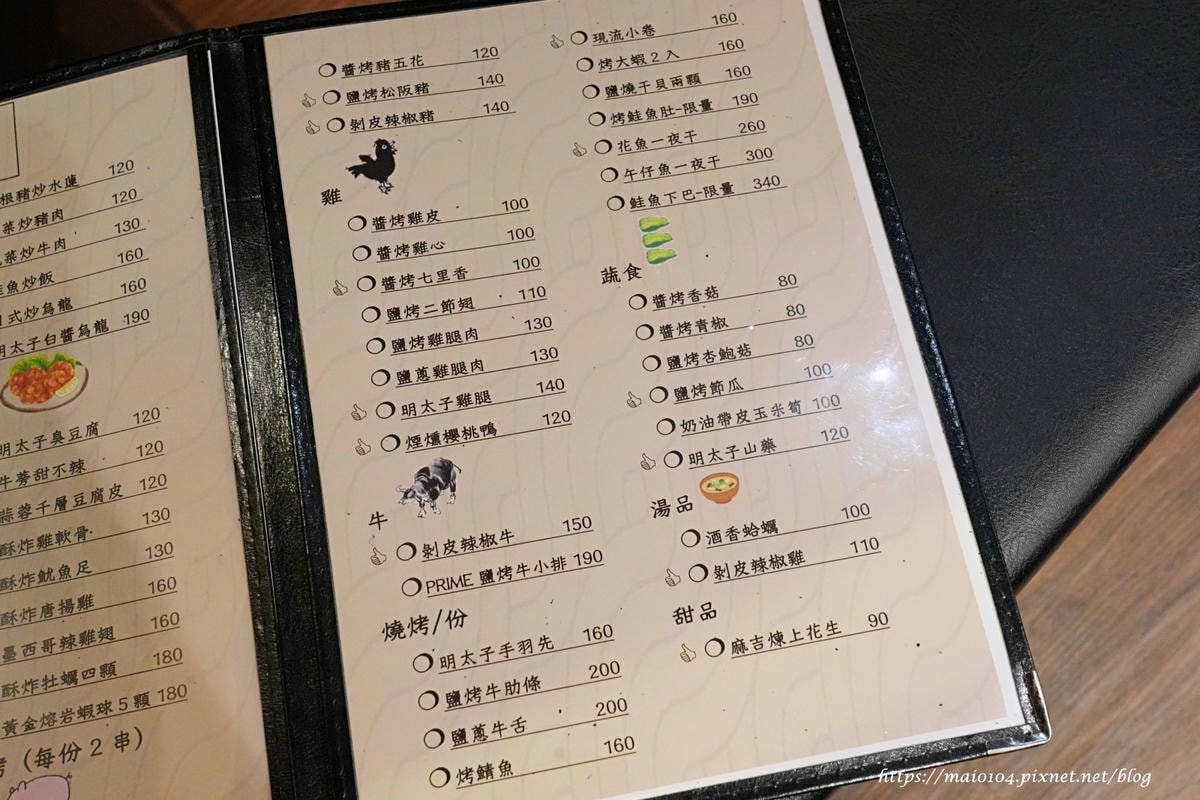 根豬炒水蓮 120
菜炒豬肉 120
菜炒牛肉 130
魚炒飯 160
式炒烏龍 160
明太子白醬烏龍 190
明太子臭豆腐 120
牛蒡甜不辣 120
蒜蓉千層豆腐皮 120
酥炸雞軟骨 130
酥炸魷魚足 130
酥炸唐揚雞 160
墨西哥辣雞翅 160
酥炸牡蠣四顆 180
黃金熔岩蝦球5顆 180
烤（每份2串）
醬烤豬五花 120
鹽烤松阪豬 140
剝皮辣椒豬 140
雞
醬烤雞皮 100
醬烤雞心 100
醬烤七里香 100
鹽烤二節翅 110
鹽烤雞腿肉 130
鹽蔥雞腿肉 130
明太子雞腿 140
煙燻櫻桃鴨 120
牛
剝皮辣椒牛 150
PRIME 鹽烤牛小排 190
燒烤/份
明太子手羽先 160
鹽烤牛肋條 200
鹽蔥牛舌 200
烤鯖魚 160
現流小卷 160
烤大蝦2入 160
鹽燒干貝兩顆 160
烤鮭魚肚-限量 190
花魚一夜干 260
午仔魚一夜干 300
鮭魚下巴-限量 340
蔬食
醬烤香菇 80
醬烤青椒 80
鹽烤杏鮑菇 80
鹽烤節瓜 100
奶油帶皮玉米筍 100
明太子山藥 120
湯品
酒香蛤蠣 100
剝皮辣椒雞 110
甜品
麻吉煉上花生 90
https://maio104.pixnet.net/blog